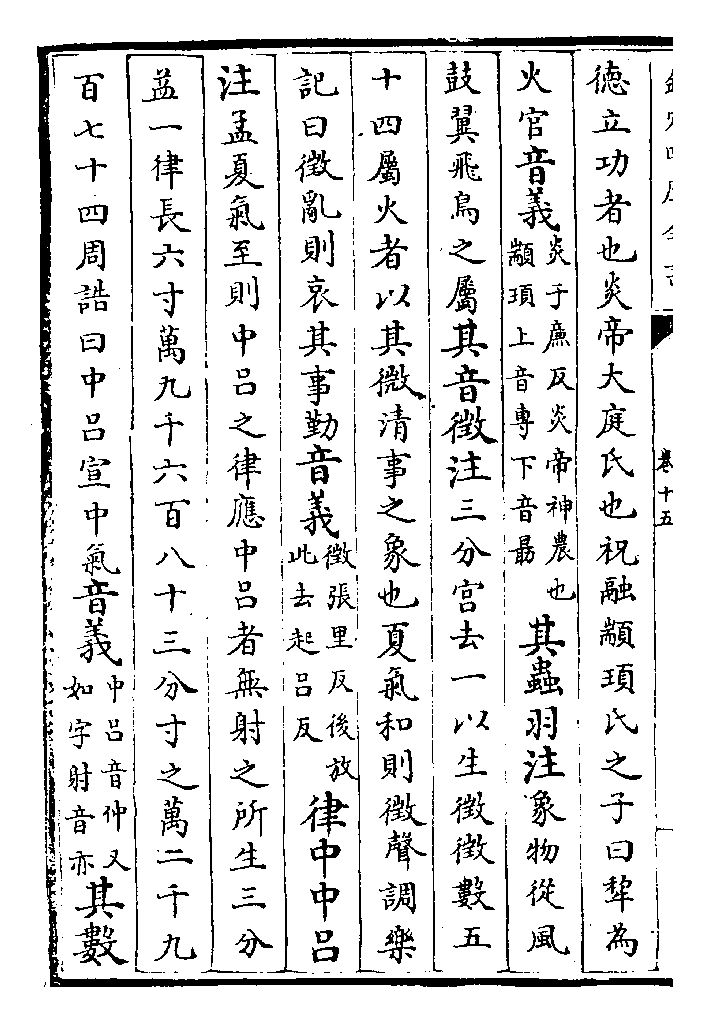 卷十五
德立功者也炎帝大庭氏也祝融顓頊氏之子曰犂為
火官音義炎于廉反炎帝神農也顓頊上音專下音勗其蟲羽注象物從風
鼓翼飛鳥之屬其音徵注三分宫去一以生徵徵數五
十四屬火者以其微清事之象也夏氣和則徵聲調樂
記曰徵亂則哀其事勤音義徵張里反後放此去起吕反律中中吕
注孟夏氣至則中吕之律應中吕者無射之所生三分
益一律長六寸萬九千六百八十三分寸之萬二千九
百七十四周誥曰中吕宣中氣音義中吕音仲又如字射音亦其數